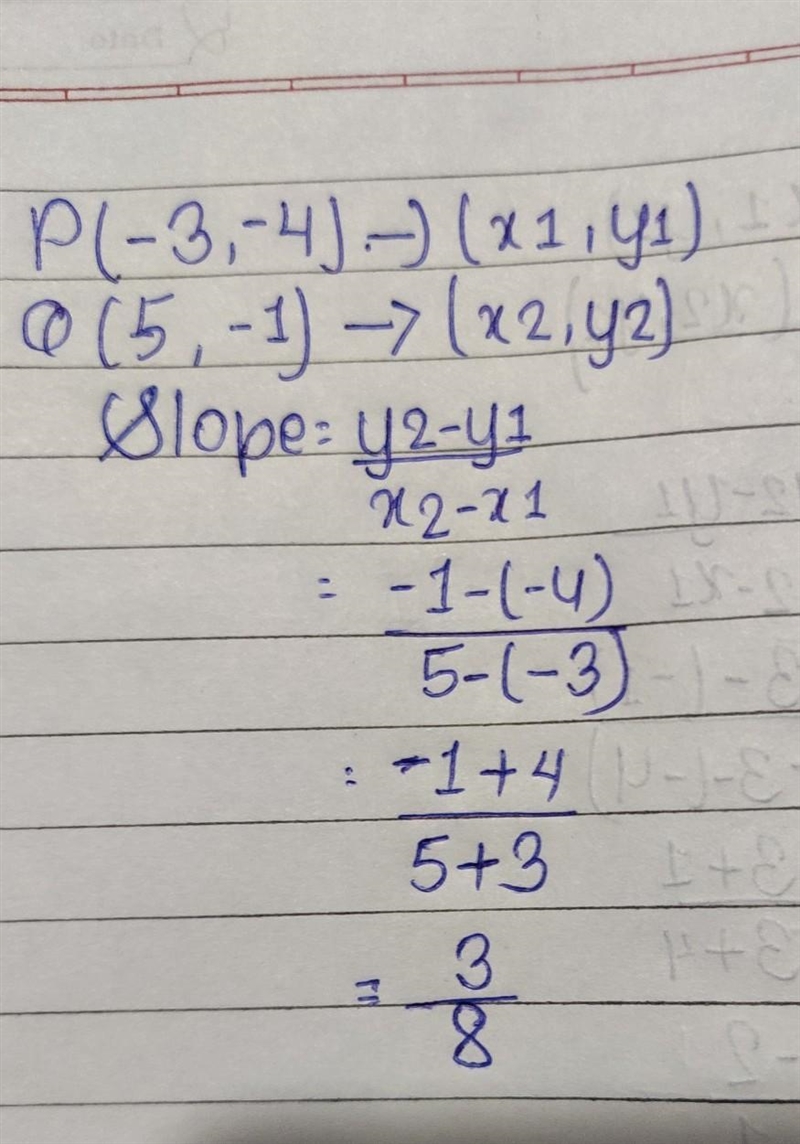 P(-3,-4) -> (x1, y1)
Q(5, -1) -> (x2, y2)
Slope = y2-y1
x2-x1
= -1-(-4)
5-(-3)
= -1+4
5+3
= 3
8